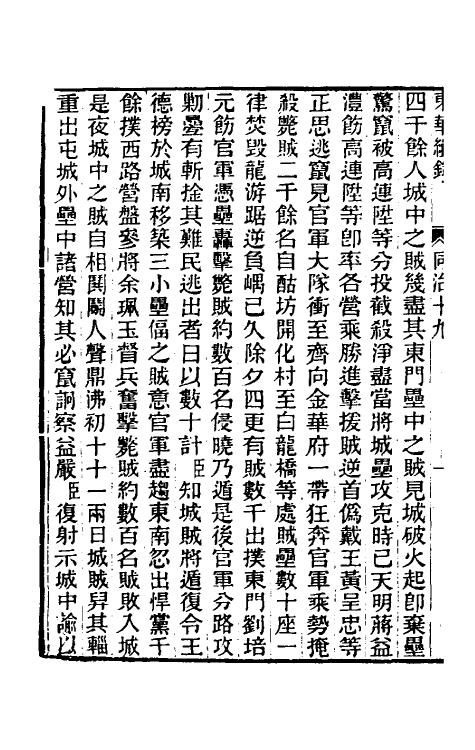 東華續錄 同治十九
四千餘人城中之賊幾盡其東門壘中之賊見城破火起卽棄壘
驚竄被高連陞等分投截殺淨盡當將城壘攻克時已天明蔣益
澧飭高連陞等卽率各營乘勝進擊援賊逆首僞戴王黃呈忠等
正思逃竄見官軍大隊衝至齊向金華府一帶狂奔官軍乘勢掩
殺斃賊二千餘名自酤坊開化村至白龍橋等處賊壘數十座一
律焚毀龍游踞逆負嵎已久除夕四更有賊數千出撲東門劉培
元飭官軍憑壘轟擊斃賊約數百名侵曉乃遁是後官軍分路攻
勦疊有斬捡其難民逃出者日以數十計臣知城賊將遁復令王
德榜於城南移築三小壘偪之賊意官軍盡趨東南忽出悍黨千
餘撲西路營盤參將余珮玉督兵奮擊斃賊約數百名賊敗入城
是夜城中之賊自相鬨鬭人聲鼎沸初十十一兩日城賊舁其輜
重出屯城外壘中諸營知其必竄詗察益嚴臣復射示城中諭以